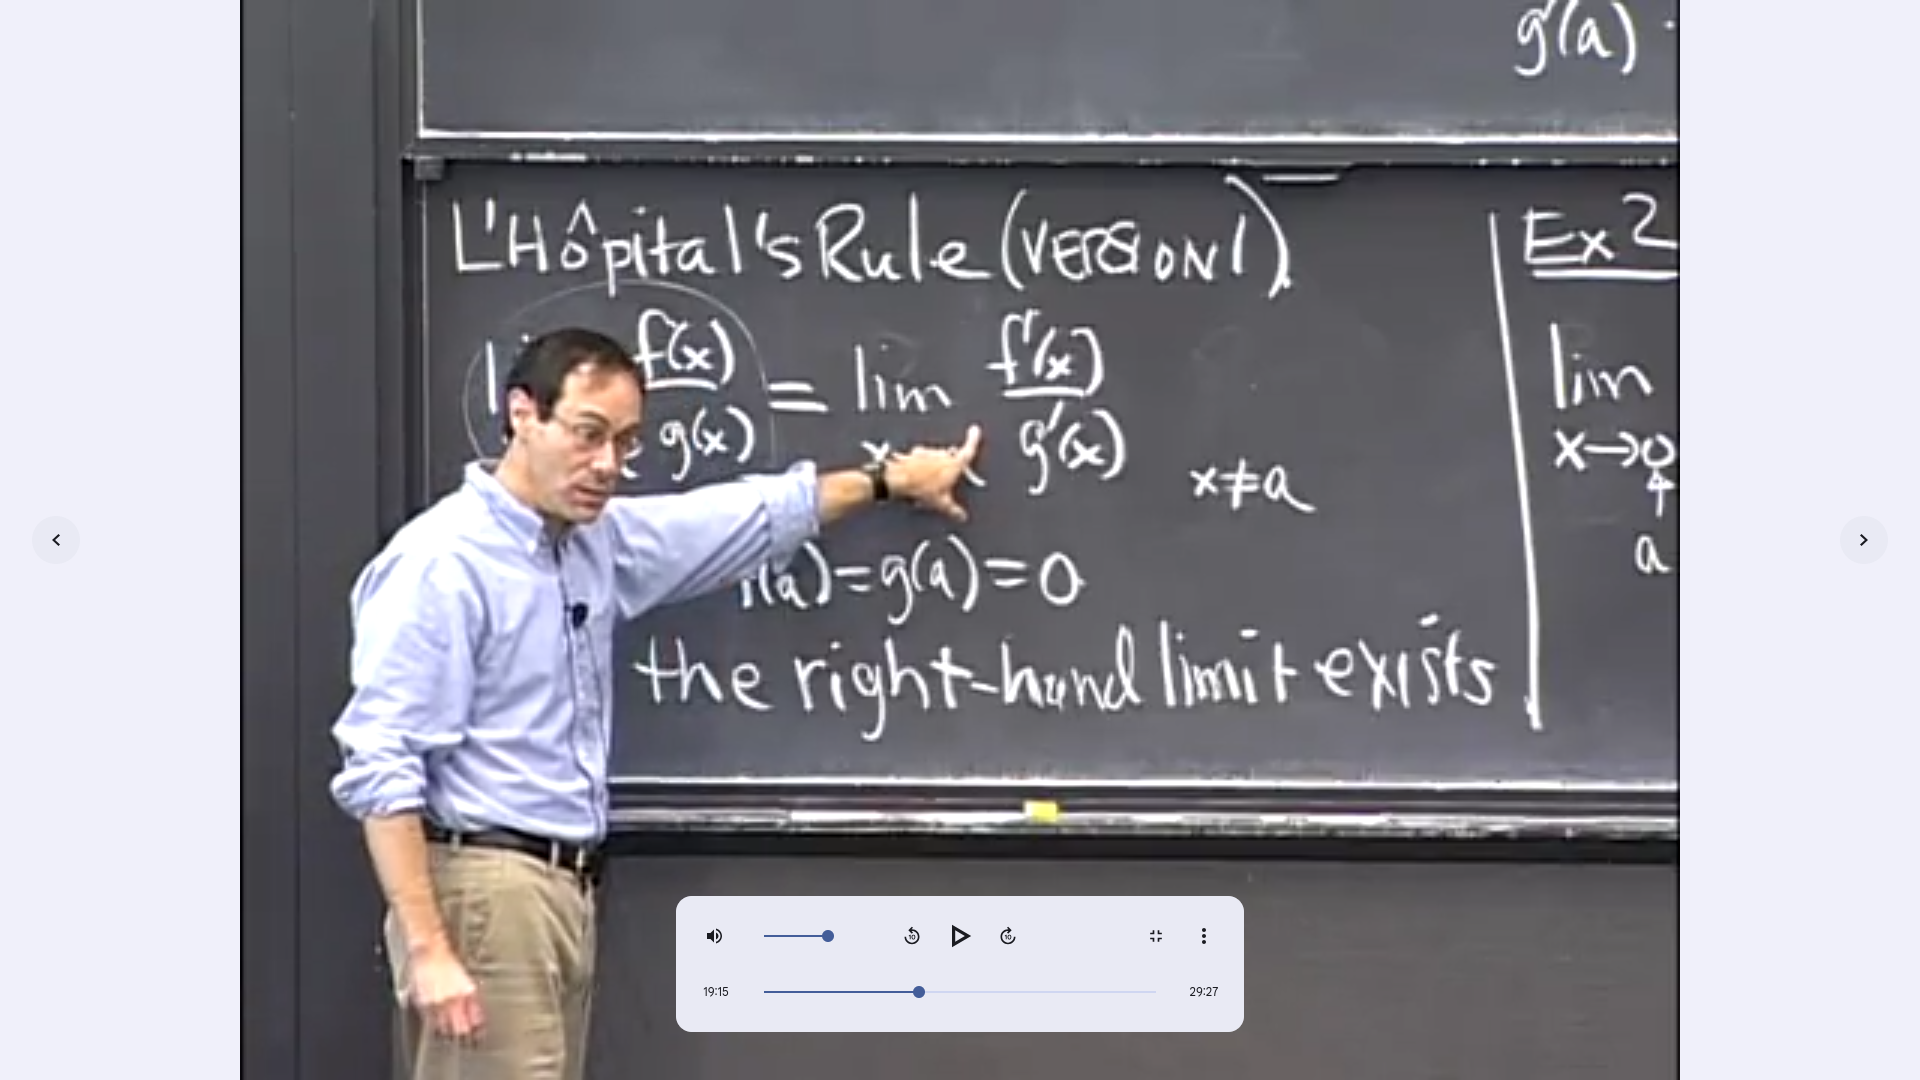 g'(a)
L'Hôpital's Rule (VERSION 1)
f(x)
g(x)
= lim
f'(x)
g'(x)
x≠a
(a)=g(a)=0
the right-hand limit exists
Ex 2
lim
x→0
↑
a
19:15
29:27